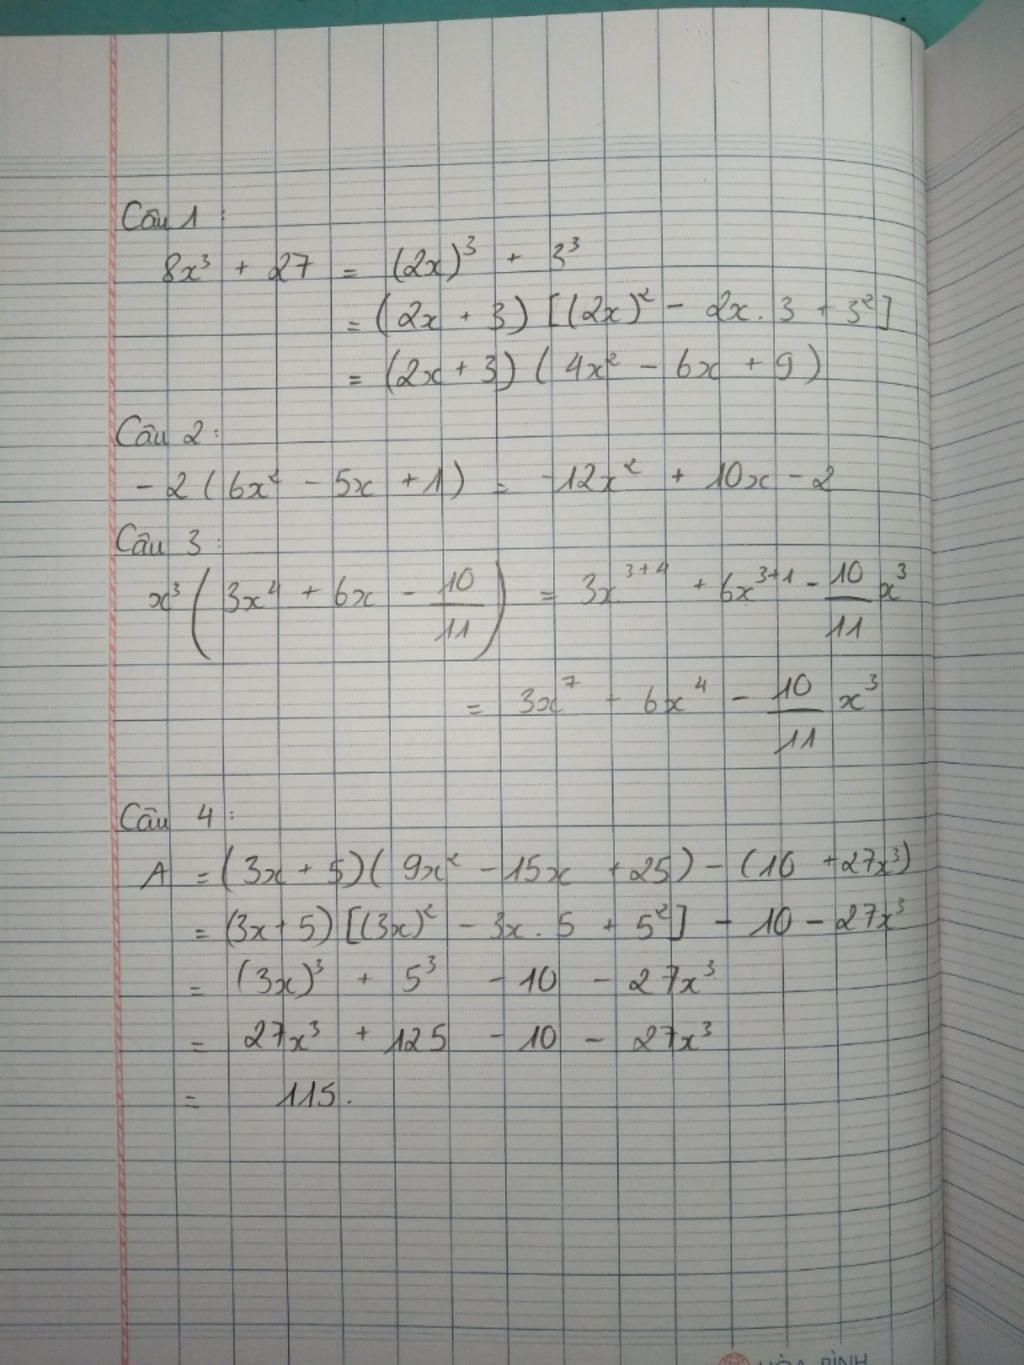 Câu 1 :
8x³ + 27 = (2x)³ + 3³
= (2x + 3) [(2x)² - 2x. 3 + 3²]
= (2x + 3) ( 4x² - 6x + 9 )
Câu 2 :
- 2 ( 6x² - 5x + 1 ) = -12x² + 10x - 2
Câu 3 :
x³ ( 3x⁴ + 6x - 10/11 ) = 3x³⁺⁴ + 6x³⁺¹ - 10/11 x³
= 3x⁷ + 6x⁴ - 10/11 x³
Câu 4 :
A = (3x + 5)( 9x² - 15x + 25) - (10 + 27x³)
= (3x + 5) [(3x)² - 3x . 5 + 5²] - 10 - 27x³
= (3x)³ + 5³ - 10 - 27x³
= 27x³ + 125 - 10 - 27x³
= 115.
HÒA BÌNH